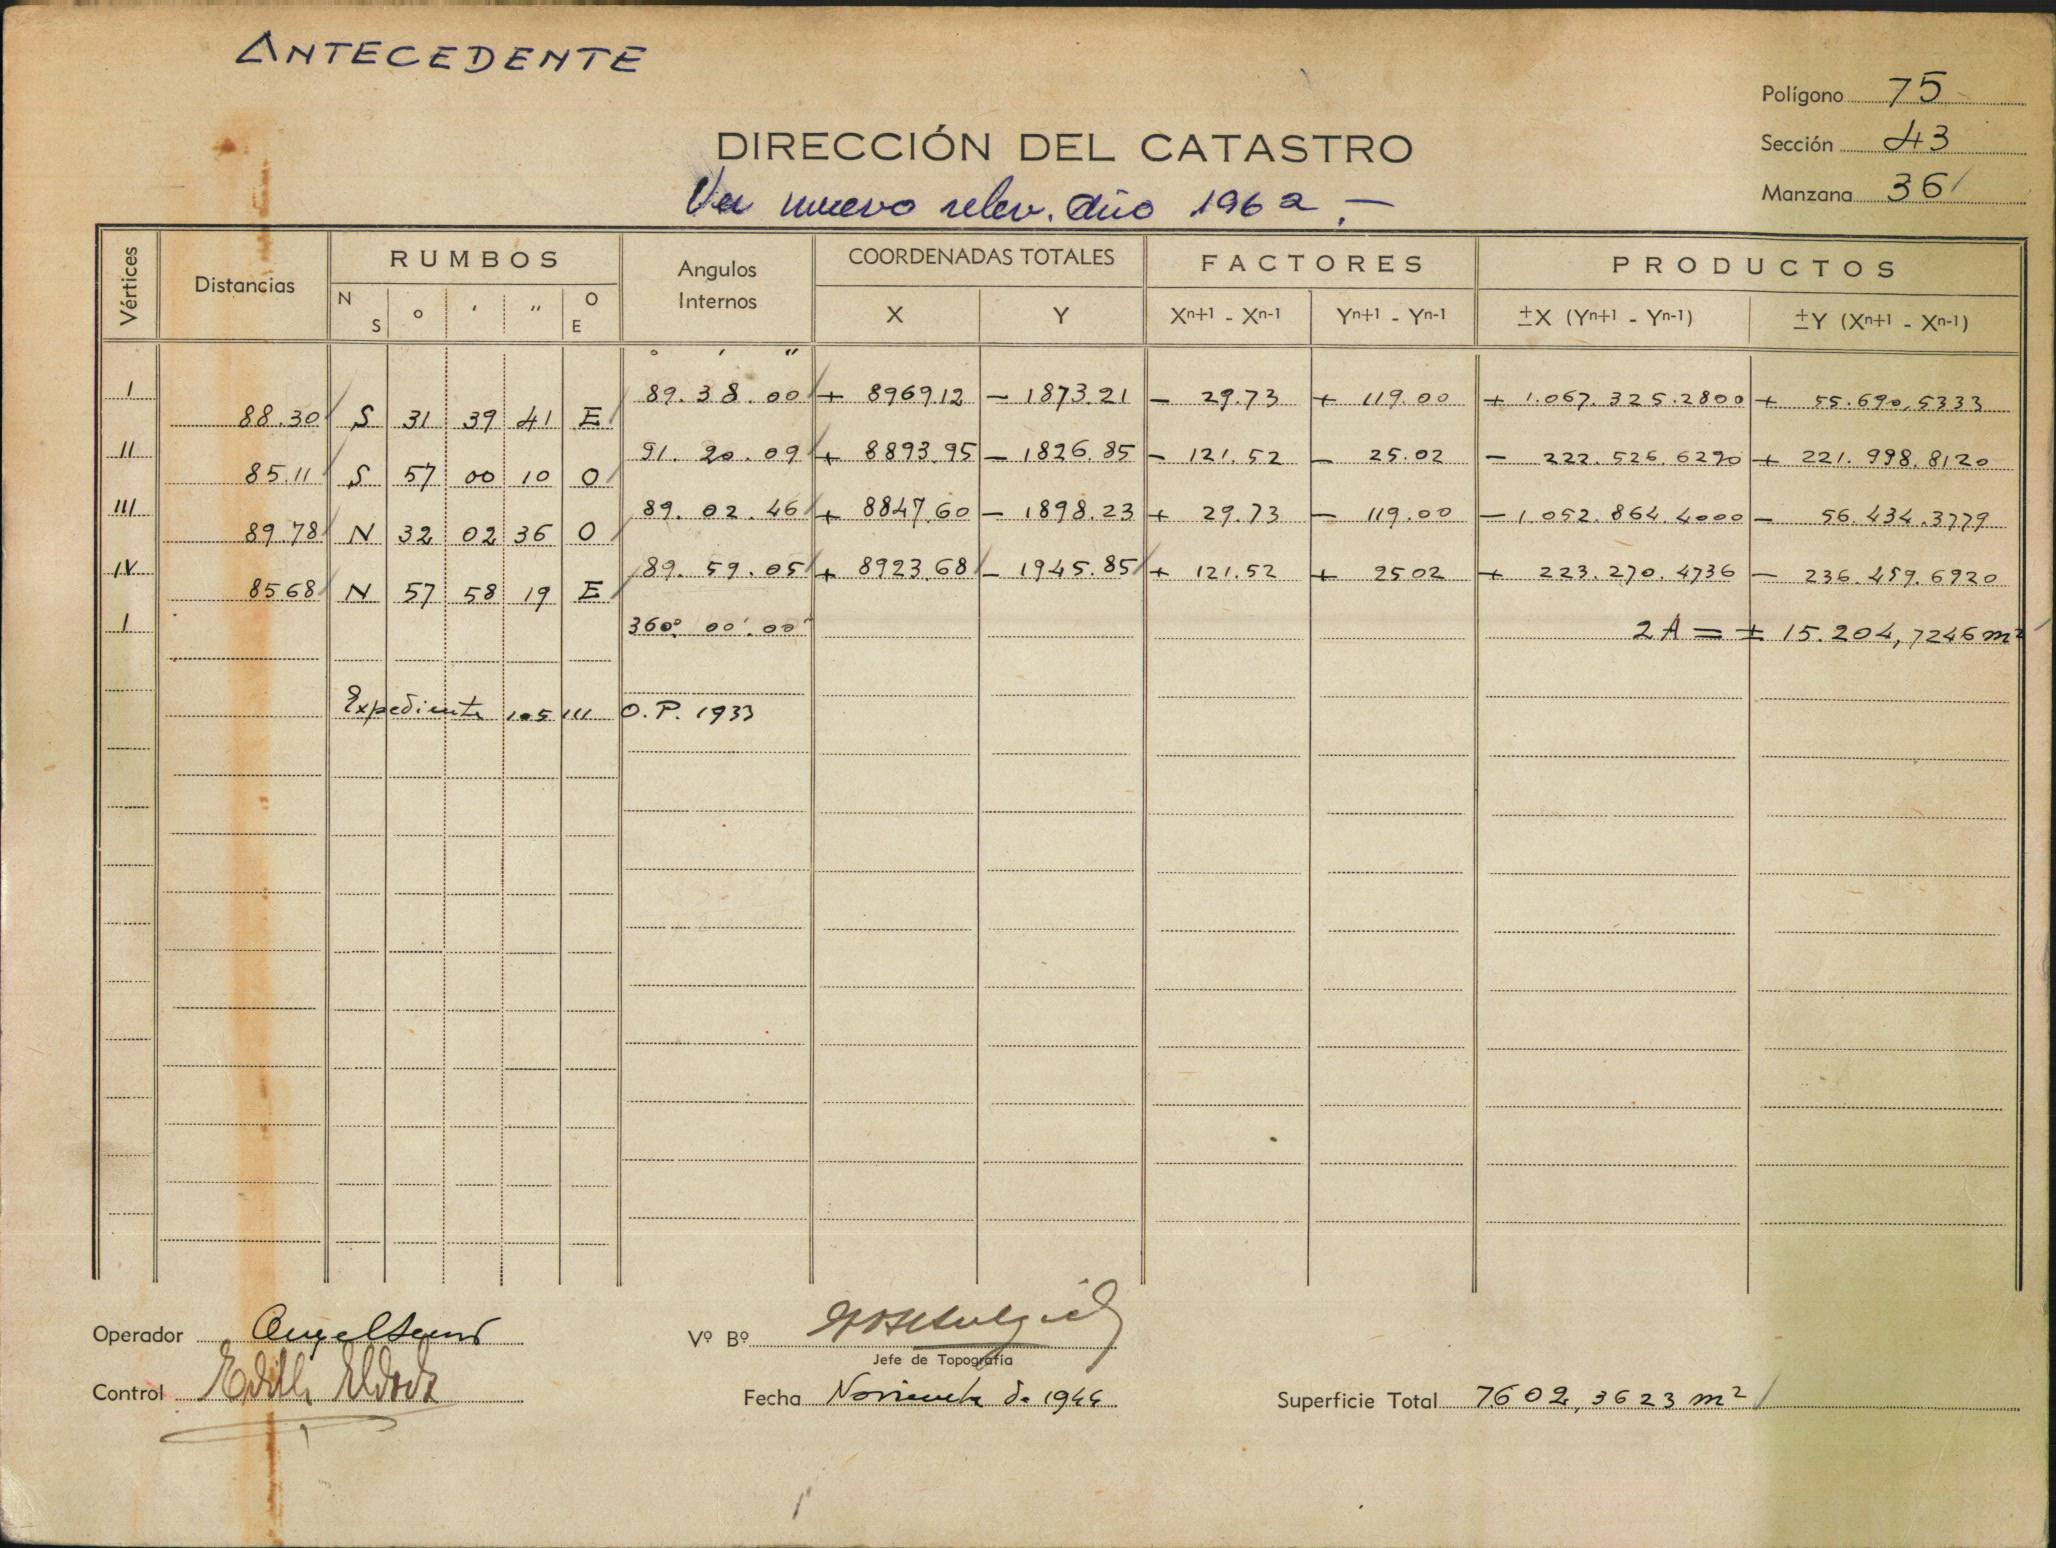 ANTECEDENTE
Polígono 75
Sección 43
Manzana 36
DIRECCIÓN DEL CATASTRO
Ver nuevo relev. año 1962.-
Vértices Distancias RUMBOS Angulos Internos COORDENADAS TOTALES FACTORES PRODUCTOS
N S ° ' " O E X Y Xn+1 - Xn-1 Yn+1 - Yn-1 ±X (Yn+1 - Yn-1) ±Y (Xn+1 - Xn-1)
° ' "
I 89.38.00 + 8969.12 - 1873.21 - 29.73 + 119.00 + 1.067.325.2800 + 55.690,5333
88.30 S 31 39 41 E
II 91.20.09 + 8893.95 - 1826.85 - 121.52 - 25.02 - 222.526.6290 + 221.998.8120
85.11 S 57 00 10 O
III 89.02.46 + 8847.60 - 1898.23 + 29.73 - 119.00 - 1.052.864.4000 - 56.434.3779
89.78 N 32 02 36 O
IV 89.59.05 + 8923.68 - 1945.85 + 121.52 + 25.02 + 223.270.4736 - 236.459.6920
85.68 N 57 58 19 E
I 360° 00'.00" 2A = ± 15.204,7246 m²
Expediente 105 III O.P. 1933
Operador
Vº Bº
Jefe de Topografía
Control
Fecha Noviembre de 1944
Superficie Total 7602,3623 m²